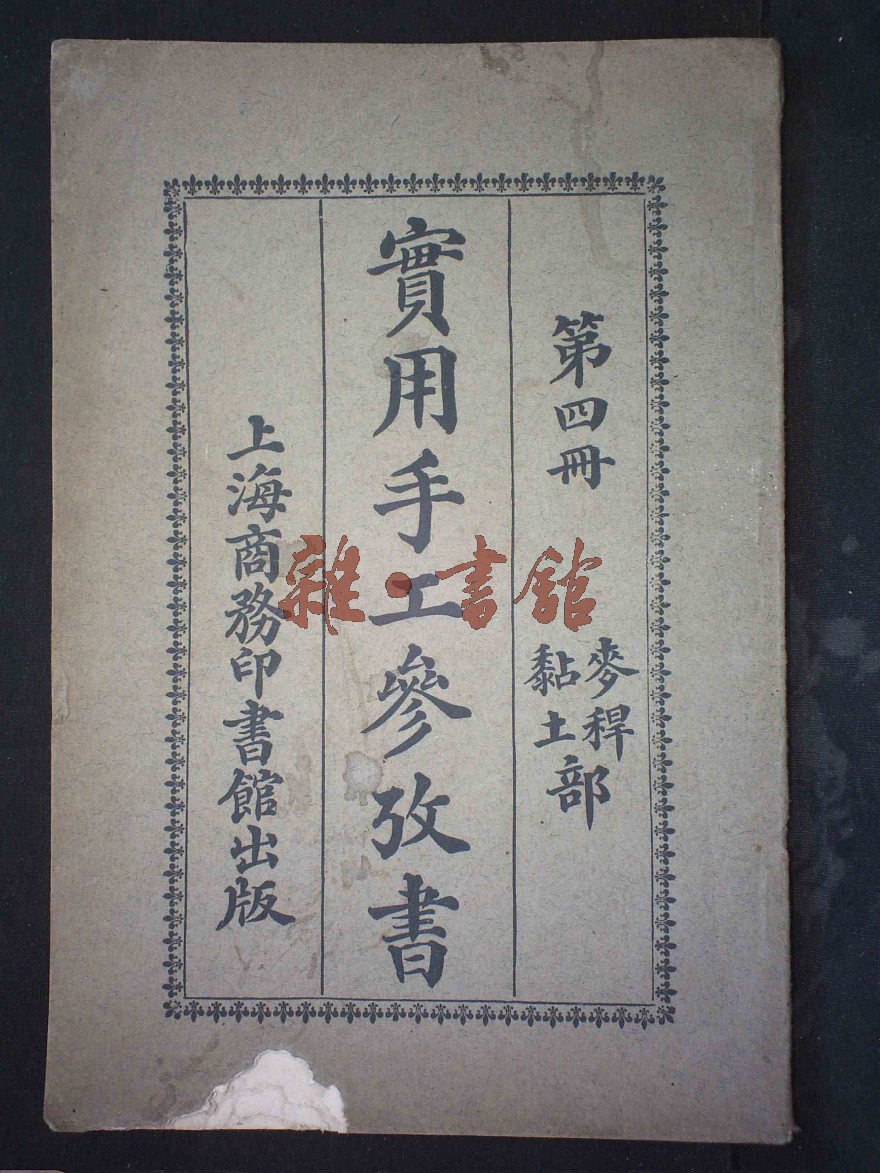 第四冊
麥稈
黏土
部
實用手工參攷書
上海商務印書館出版
雜·書館